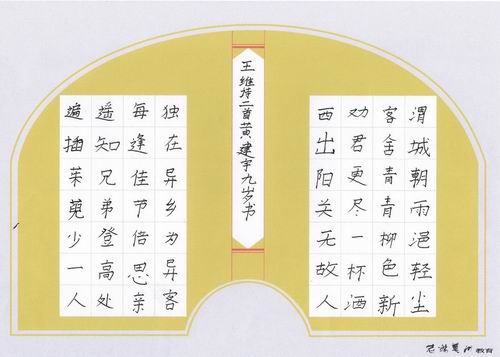 渭城朝雨浥轻尘
客舍青青柳色新
劝君更尽一杯酒
西出阳关无故人
王维诗二首黄建宇九岁书
独在异乡为异客
每逢佳节倍思亲
遥知兄弟登高处
遍插茱萸少一人
教育